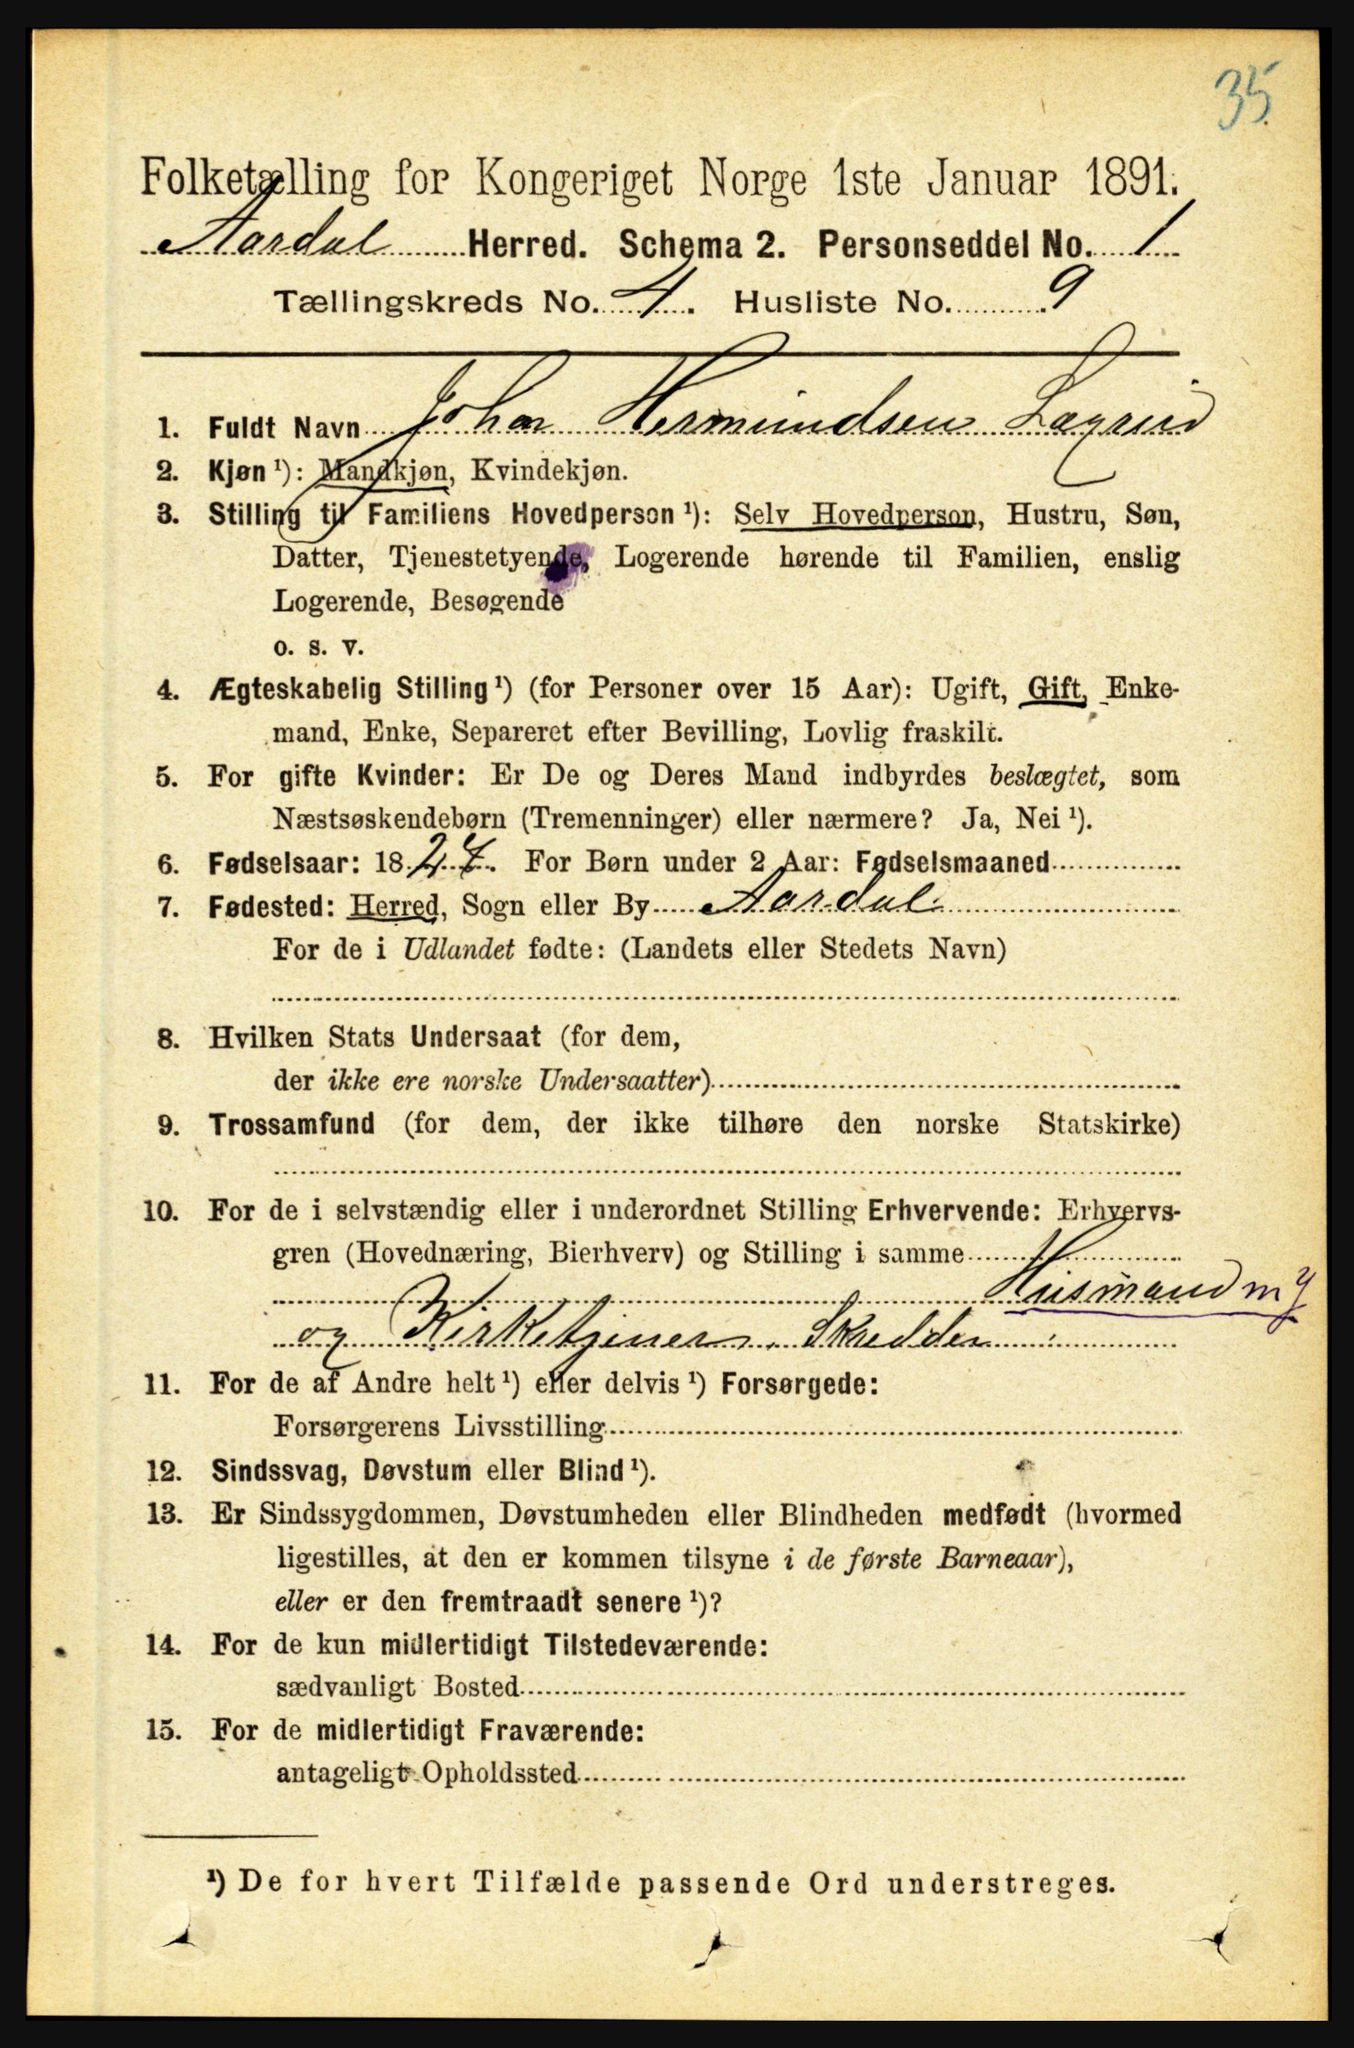 35
Folketælling for Kongeriget Norge 1ste Januar 1891.
Aardal Herred. Schema 2. Personseddel No. 1
Tællingskreds No. 4. Husliste No. 9
1. Fuldt Navn Johan Hermundsen Lægreid
2. Kjøn ¹): Mandkjøn, Kvindekjøn.
3. Stilling til Familiens Hovedperson ¹): Selv Hovedperson, Hustru, Søn,
Datter, Tjenestetyende, Logerende hørende til Familien, enslig
Logerende, Besøgende
o. s. v.
4. Ægteskabelig Stilling ¹) (for Personer over 15 Aar): Ugift, Gift, Enke-
mand, Enke, Separeret efter Bevilling, Lovlig fraskilt.
5. For gifte Kvinder: Er De og Deres Mand indbyrdes beslægtet, som
Næstsøskendebørn (Tremenninger) eller nærmere? Ja, Nei ¹).
6. Fødselsaar: 1827. For Børn under 2 Aar: Fødselsmaaned
7. Fødested: Herred, Sogn eller By Aardal
For de i Udlandet fødte: (Landets eller Stedets Navn)
8. Hvilken Stats Undersaat (for dem,
der ikke ere norske Undersaatter)
9. Trossamfund (for dem, der ikke tilhøre den norske Statskirke)
10. For de i selvstændig eller i underordnet Stilling Erhvervende: Erhvervs-
gren (Hovednæring, Bierhverv) og Stilling i samme
Husmand m J
og Kirketjener, Skredder
11. For de af Andre helt ¹) eller delvis ¹) Forsørgede:
Forsørgerens Livsstilling
12. Sindssvag, Døvstum eller Blind ¹).
13. Er Sindssygdommen, Døvstumheden eller Blindheden medfødt (hvormed
ligestilles, at den er kommen tilsyne i de første Barneaar),
eller er den fremtraadt senere ¹)?
14. For de kun midlertidigt Tilstedeværende:
sædvanligt Bosted
15. For de midlertidigt Fraværende:
antageligt Opholdssted
¹) De for hvert Tilfælde passende Ord understreges.